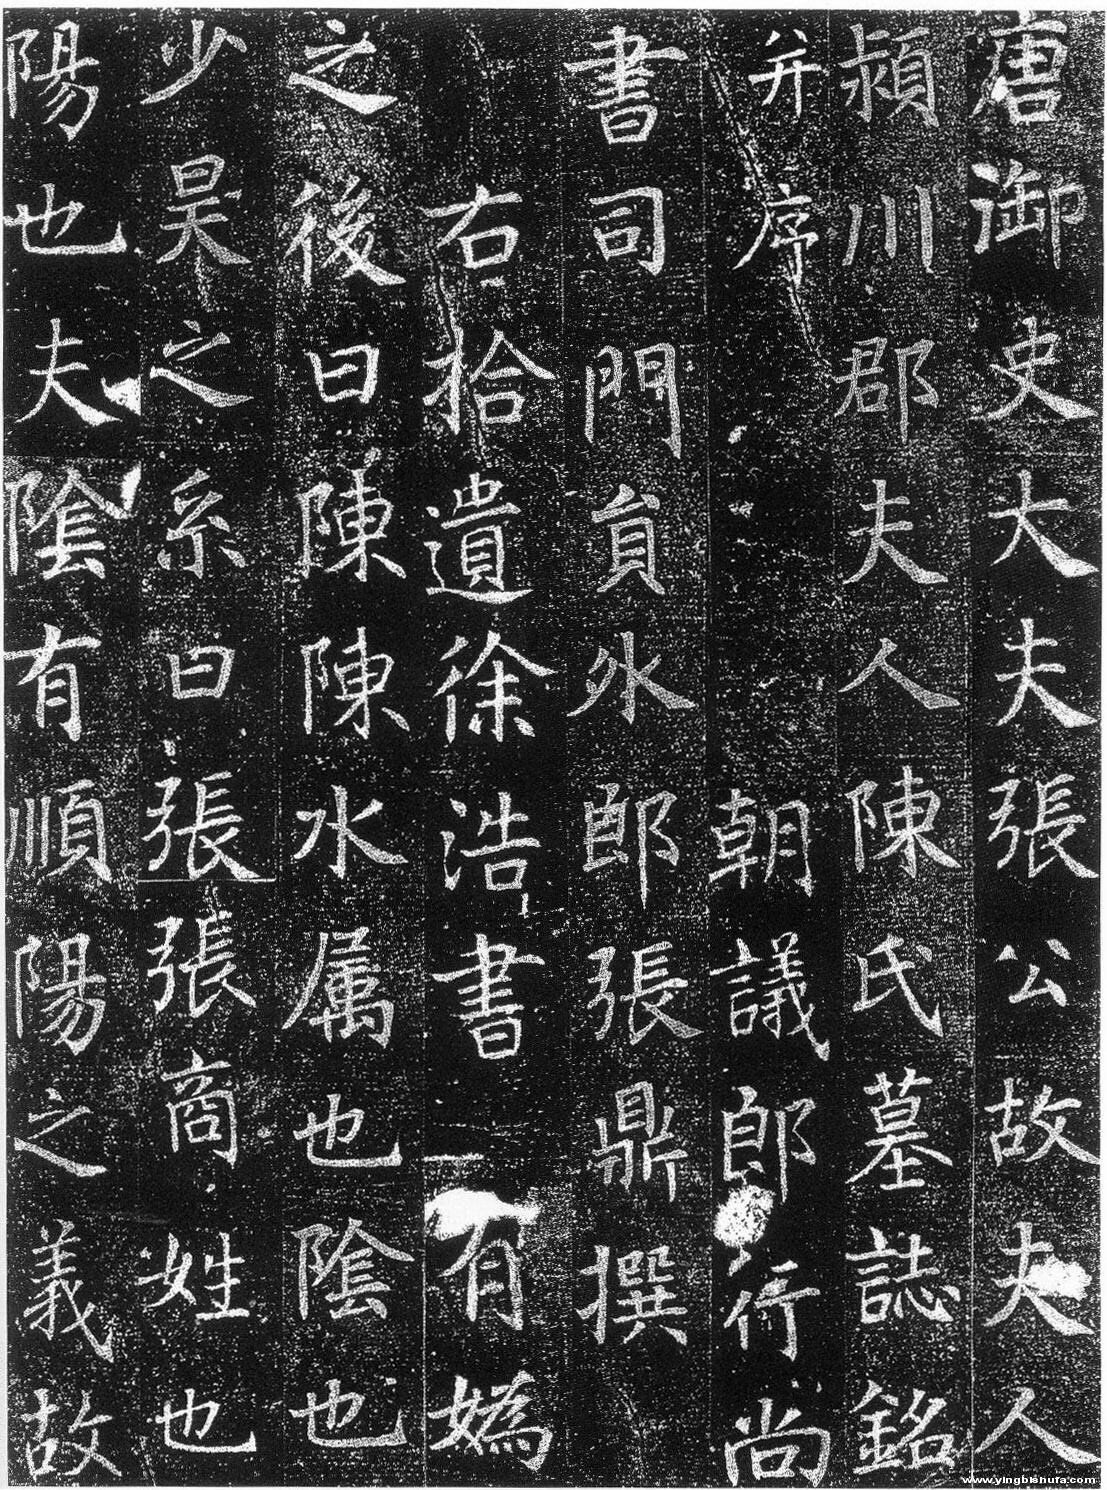 唐御史大夫張公故夫人
潁川郡夫人陳氏墓誌銘
并序 朝議郎行尚
書司門負外郎張鼎撰
右拾遺徐浩書 有媯
之後曰陳陳水属也陰也
少昊之系曰張張商姓也
陽也夫陰有順陽之義故
www.yingbishufa.com